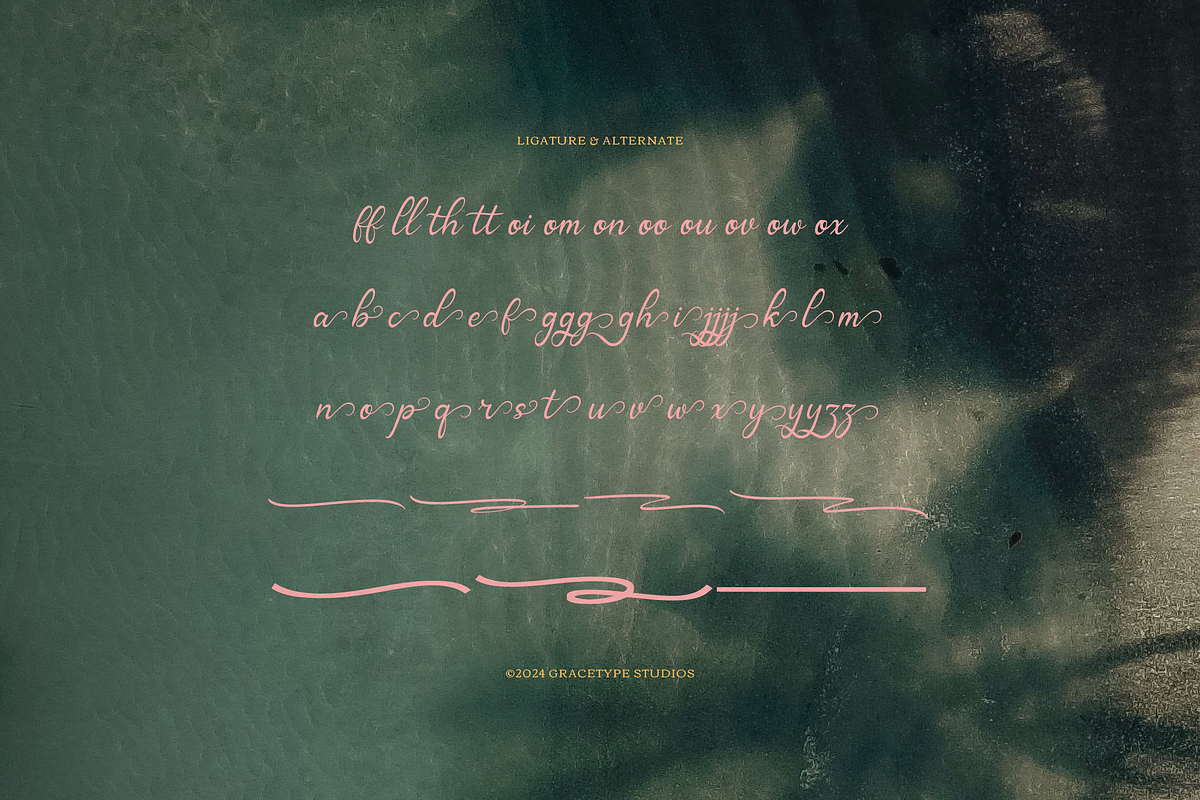 LIGATURE & ALTERNATE
ff ll th tt oi om on oo ou ov ow ox
a b c d e f g g g g h i j j j j k l m
n o p q r s t u v w x y y y z z
©2024 GRACETYPE STUDIOS